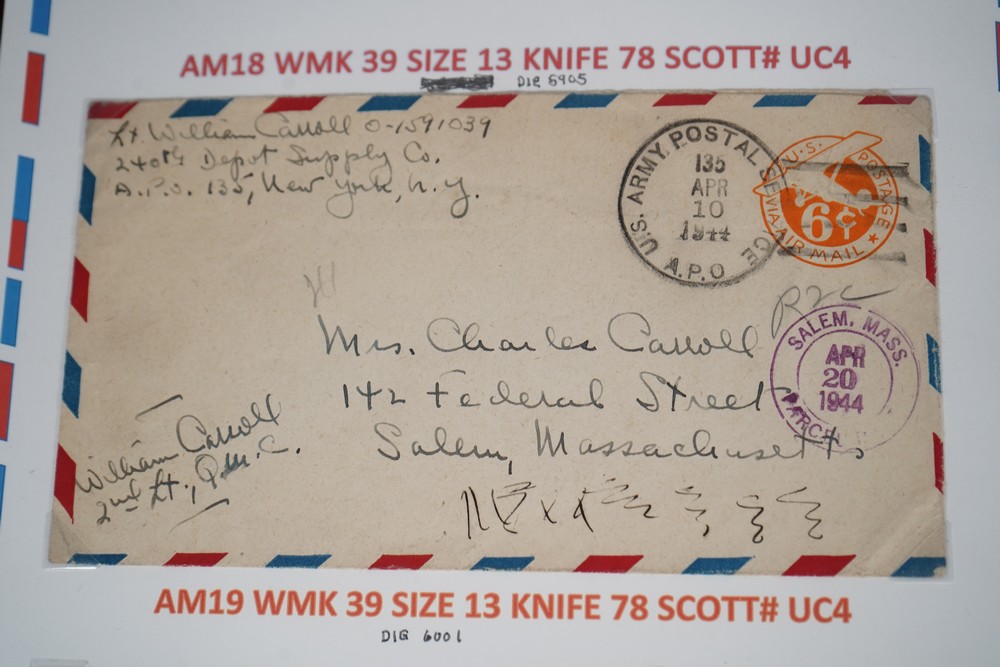 AM18 WMK 39 SIZE 13 KNIFE 78 SCOTT# UC4
DIE 5905
Lt. William Carroll O-1591039
240th Depot Supply Co.
A.P.O. 135, New York, N.Y.
U.S. ARMY POSTAL SERVICE
135
APR
10
1944
A.P.O
U.S. POSTAGE
6¢
VIA AIR MAIL
Mrs. Charles Carroll
142 Federal Street
Salem, Massachusetts
SALEM, MASS.
APR
20
1944
PARCEL
William Carroll
2nd Lt., Q.M.C.
AM19 WMK 39 SIZE 13 KNIFE 78 SCOTT# UC4
DIE 6001